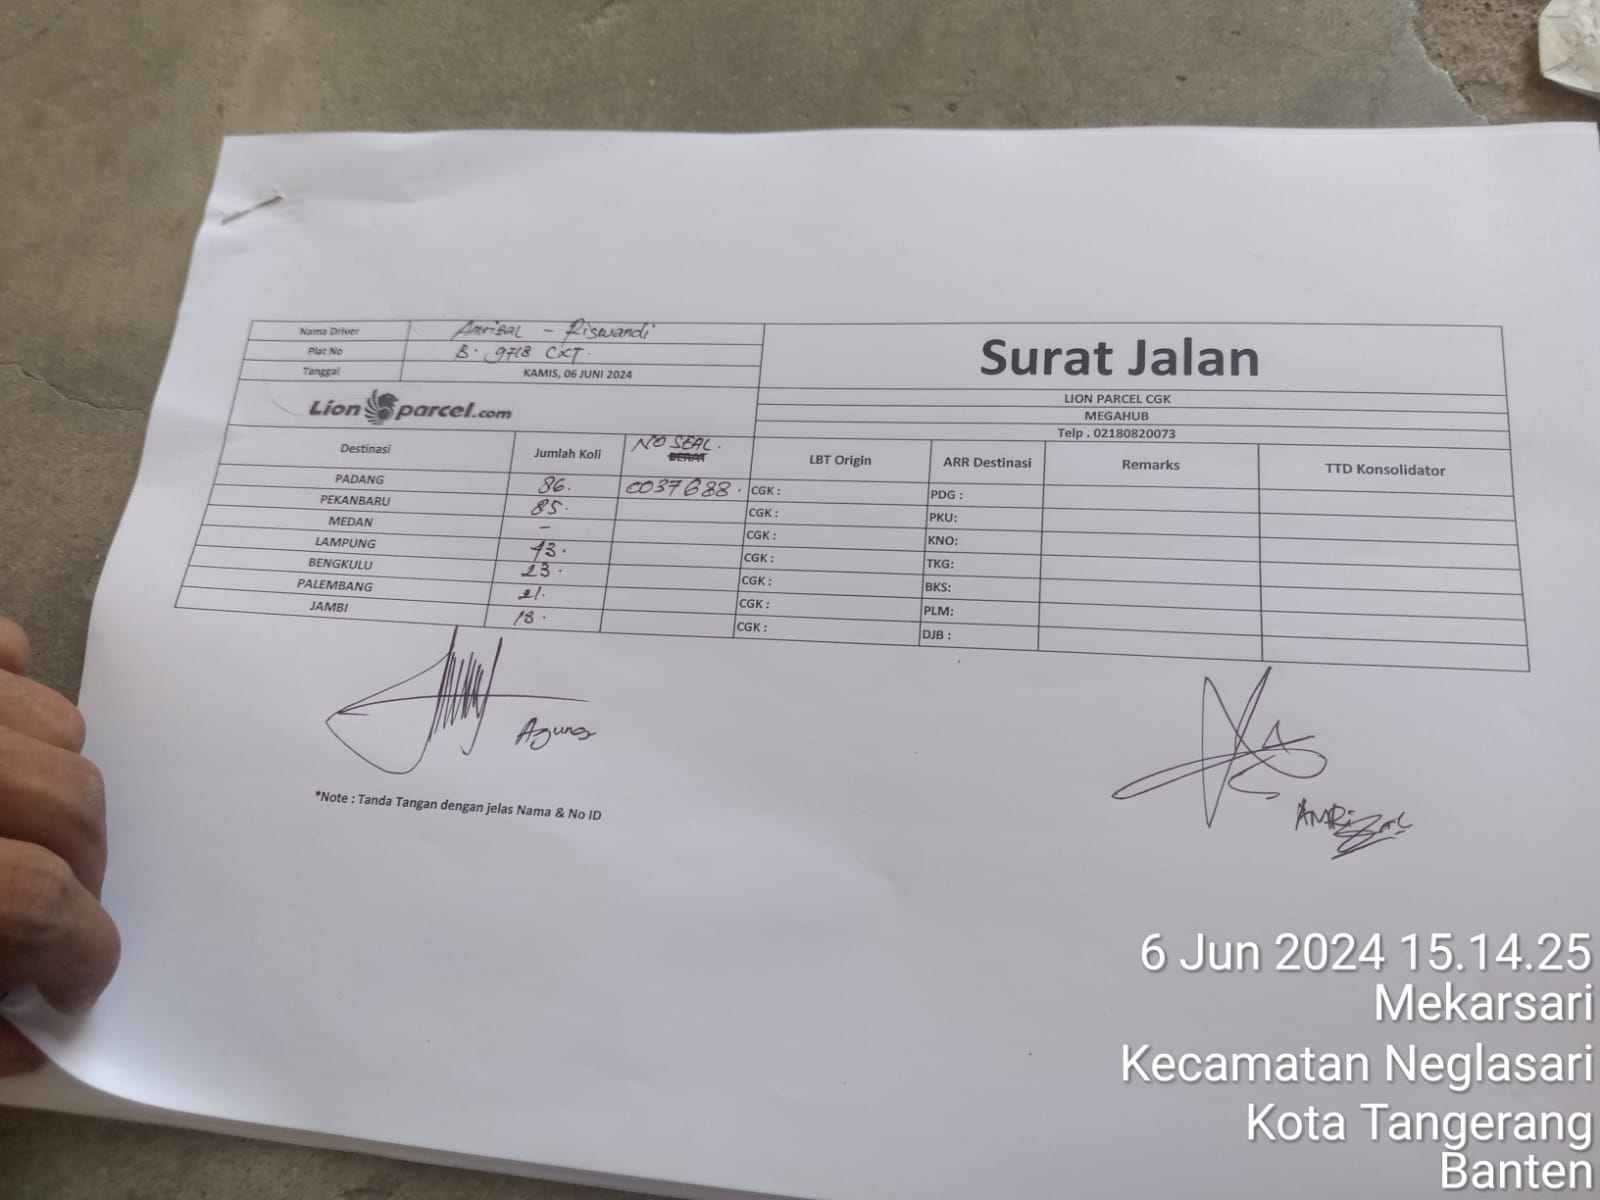 Nama Driver Amrizal - Riswandi
Plat No B. 9718 CXT.
Tanggal KAMIS, 06 JUNI 2024
Surat Jalan
LION PARCEL CGK
MEGAHUB
Telp . 02180820073
Lion parcel.com
Destinasi Jumlah Koli NO SEAL. BERAT LBT Origin ARR Destinasi Remarks TTD Konsolidator
PADANG 86. 0037688. CGK : PDG :
PEKANBARU 85. CGK : PKU:
MEDAN - CGK : KNO:
LAMPUNG 43. CGK : TKG:
BENGKULU 23. CGK : BKS:
PALEMBANG 21. CGK : PLM:
JAMBI 18. CGK : DJB :
Agung
AMRizal
*Note : Tanda Tangan dengan jelas Nama & No ID
6 Jun 2024 15.14.25
Mekarsari
Kecamatan Neglasari
Kota Tangerang
Banten